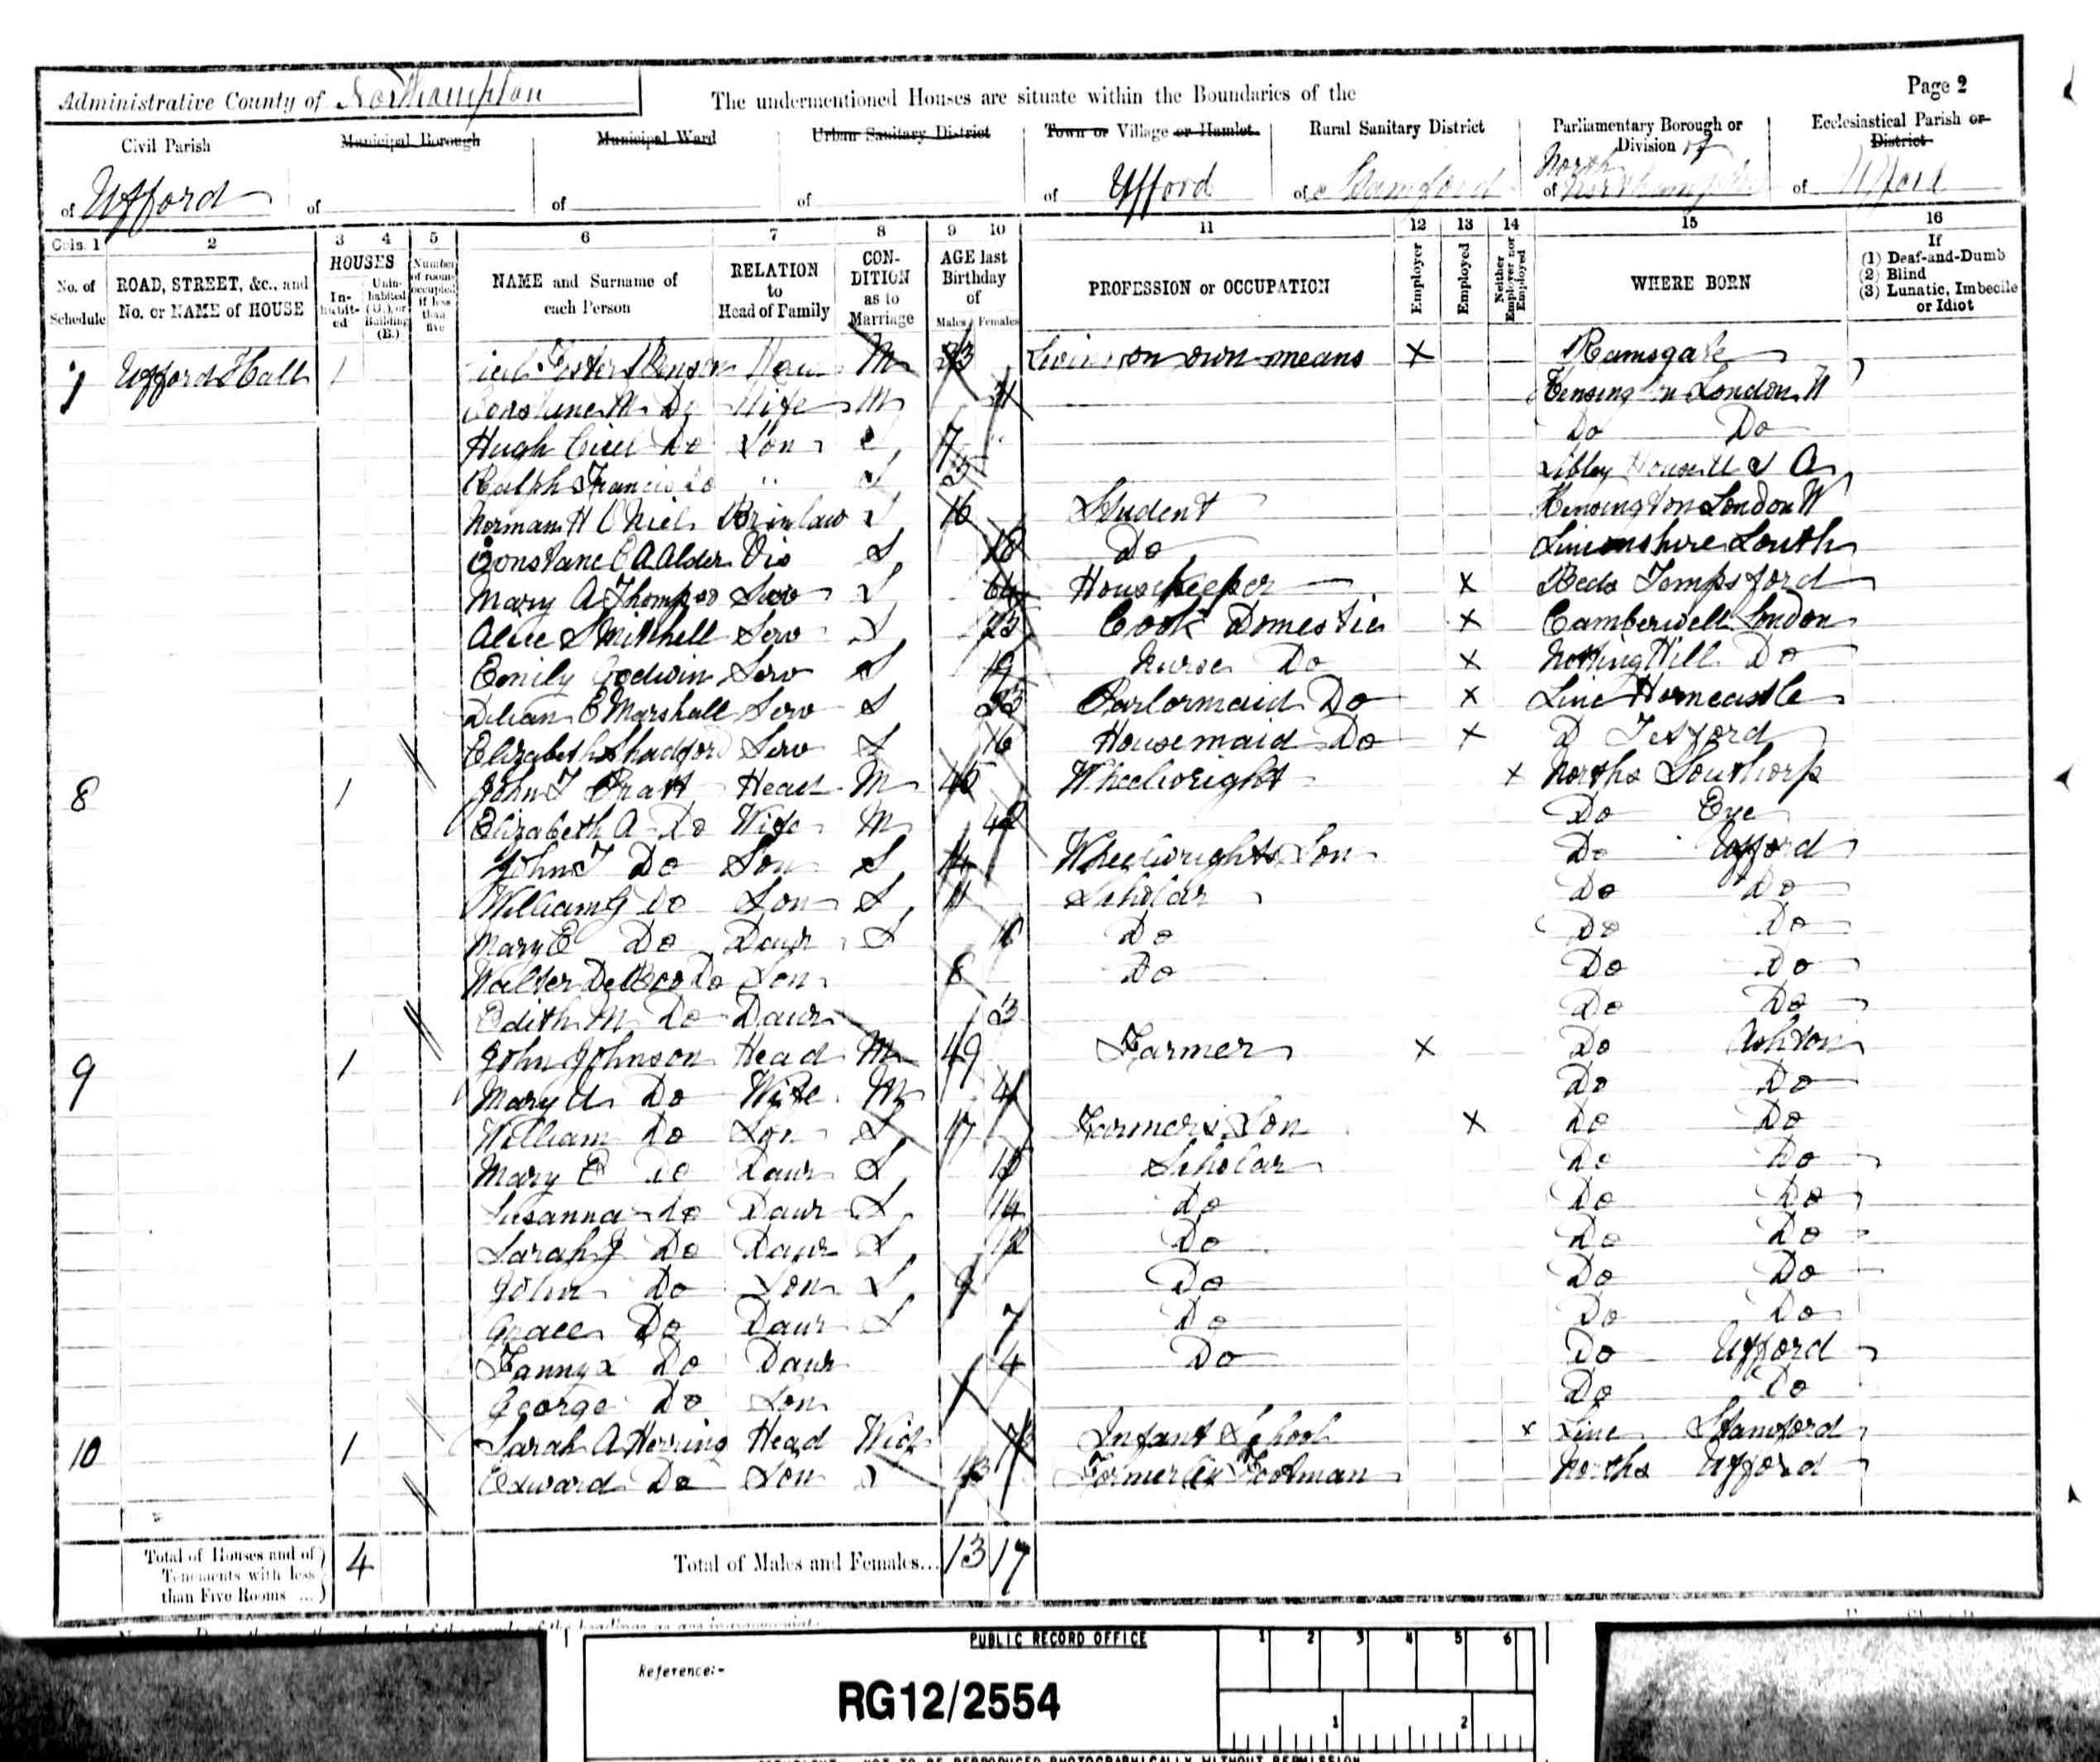 Page 2
Administrative County of Northampton
The undermentioned Houses are situate within the Boundaries of the
Civil Parish of Ufford
Municipal Borough of
Municipal Ward of
Urban Sanitary District of
Town or Village or Hamlet of Ufford
Rural Sanitary District of Stamford
Parliamentary Borough or Division of North
Ecclesiastical Parish or District of Ufford
Cols. 1 2 3 4 5 6 7 8 9 10 11 12 13 14 15 16
No. of Schedule
ROAD, STREET, &c., and No. or NAME of HOUSE
HOUSES
Inhabited
Uninhabited (U.), or Building (B.)
Number of rooms occupied if less than five
NAME and Surname of each Person
RELATION to Head of Family
CONDITION as to Marriage
AGE last Birthday of
Males Females
PROFESSION or OCCUPATION
Employer
Employed
Neither Employer nor Employed
WHERE BORN
If
(1) Deaf-and-Dumb
(2) Blind
(3) Lunatic, Imbecile or Idiot
7 Ufford Hall 1 Foster M Living on own means X Ramsgate
M. Do Wife M London W
Hugh Cecil Do Son S 7 Do Do
Ralph Francis Do " S
Norman H S 16 Student Kensington London W
Vis S 18 Do Louth
Mary A Thompson Serv S Housekeeper X Beds Tempsford
Alice S Mitchell Serv S Cook Domestic X Camberwell London
Emily Godwin Serv S 19 Nurse Do X Notting Hill Do
E Marshall Serv S Parlormaid Do X Linc Horncastle
Elizabeth Shadford Serv S 16 Housemaid Do X D Tetford
8 1 John T Pratt Head M Wheelwright X Norths Southorp
Elizabeth A Do Wife M Do Eye
John T Do Son S 14 Wheelwrights Son Do Ufford
William G Do Son S 11 Scholar Do Do
Mary E Do Daur S Do Do Do
Walter Do Son 8 Do Do Do
Edith M Do Daur 3 Do Do
9 1 John Johnson Head M 49 Farmer X Do Ashton
Mary A Do Wife M 41 Do Do
William Do Son S 17 Farmers Son X Do Do
Mary E Do Daur S 15 Scholar Do Do
Susanna Do Daur S 14 Do Do Do
Sarah J Do Daur S 12 Do Do Do
John Do Son S 9 Do Do Do
Grace Do Daur S 7 Do Do Do
Fanny Do Daur 4 Do Do Ufford
George Do Son 1 Do Do
10 1 Sarah A Herring Head Wid Infant School X Linc Stamford
Edward Do Son S 43 Footman Norths Ufford
Total of Houses and of Tenements with less than Five Rooms ... 4
Total of Males and Females... 13 17
PUBLIC RECORD OFFICE
1 2 3 4 5 6
Reference:-
RG12/2554
1 2
COPYRIGHT - NOT TO BE REPRODUCED PHOTOGRAPHICALLY WITHOUT PERMISSION